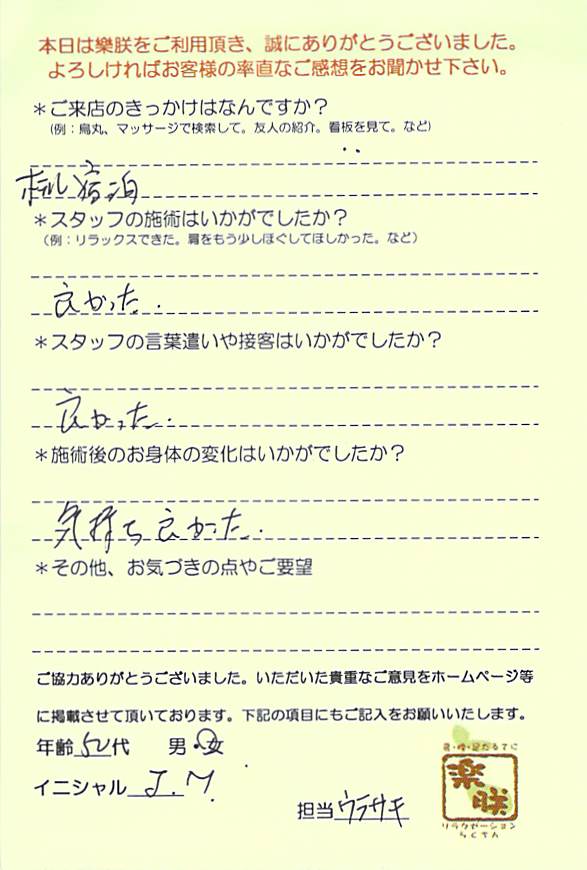 本日は樂朕をご利用頂き、誠にありがとうございました。
よろしければお客様の率直なご感想をお聞かせ下さい。
＊ご来店のきっかけはなんですか？
（例：烏丸、マッサージで検索して。友人の紹介。看板を見て。など）
ホテル宿泊
＊スタッフの施術はいかがでしたか？
（例：リラックスできた。肩をもう少しほぐしてほしかった。など）
良かった.
＊スタッフの言葉遣いや接客はいかがでしたか？
良かった.
＊施術後のお身体の変化はいかがでしたか？
気持ち良かった.
＊その他、お気づきの点やご要望
ご協力ありがとうございました。いただいた貴重なご意見をホームページ等
に掲載させて頂いております。下記の項目にもご記入をお願いいたします。
年齢50代 男・女
イニシャル J.M
担当ウラサキ
楽
朕
リラクゼーション
らくちん